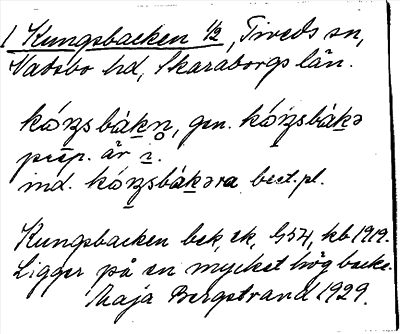 1 Kungsbacken 1/2, Tiveds sn,
Vadsbo hd, Skaraborgs län.
kóŋsbák̲n̥, gen. kóŋsbák̲ə
prep. är i̲.
ind. kóŋsbák̲əra best. pl.
Kungsbacken bek, ek, G54, kb 1919.
Ligger på en mycket hög backe.
Maja Bergstrand 1929.